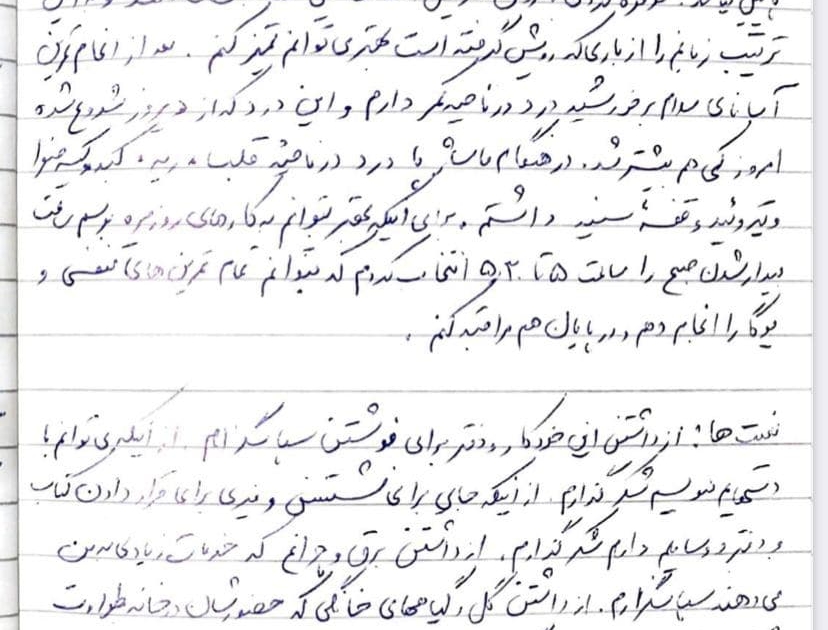 ترتیب زبانم را از باری که رویش گرفته است بهتر می توانم تمیز کنم . بعد از انجام تمرین
آسانای سلام بر خورشید درد در ناحیه کمر دارم و این درد که از دیروز شروع شده
امروز کمی هم بیشتر شد. در هنگام ماساژ با درد در ناحیه قلب، ریه، کبد و کیسه صفرا
و تیروئید و قفسهٔ سینه داشتم . برای اینکه بهتر بتوانم به کارهای روزمره برسم ساعت
بیدار شدن صبح را ساعت ۵ تا ۵.۳۰ انتخاب کردم که بتوانم تمام تمرین های تنفسی و
یوگا را انجام دهم و در پایان هم مراقبه کنم .
نعمت ها: از داشتن این خودکار و دفتر برای نوشتن سپاسگزارم . از اینکه می توانم با
دستهایم بنویسم شکرگذارم . از اینکه جای برای نشستن و میزی برای قرار دادن کتاب
و دفتر و وسایلم دارم شکرگذارم . از داشتن برق و چراغ که خدمات زیادی به من
می دهند سپاسگزارم . از داشتن گل و گیاههای خانگی که حضورشان در خانه طراوت